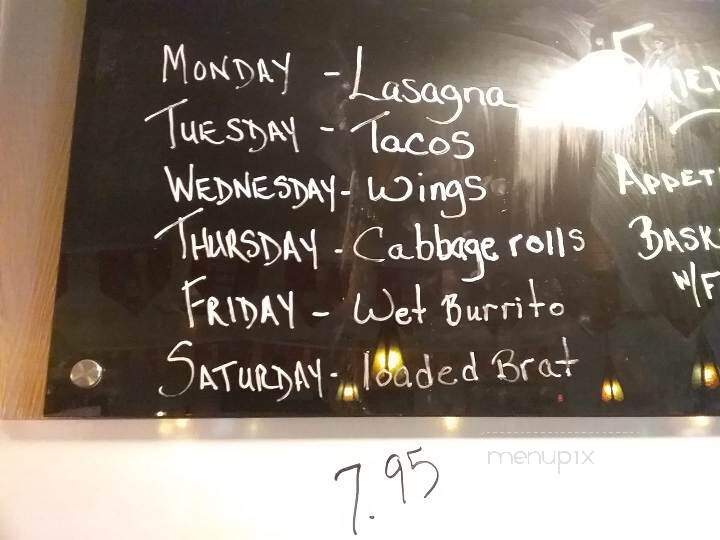 MONDAY - Lasagna
TUESDAY - Tacos
WEDNESDAY - Wings
THURSDAY - Cabbage rolls
FRIDAY - Wet Burrito
SATURDAY - loaded Brat
APPET
BASK
W/F
7.95
menupix